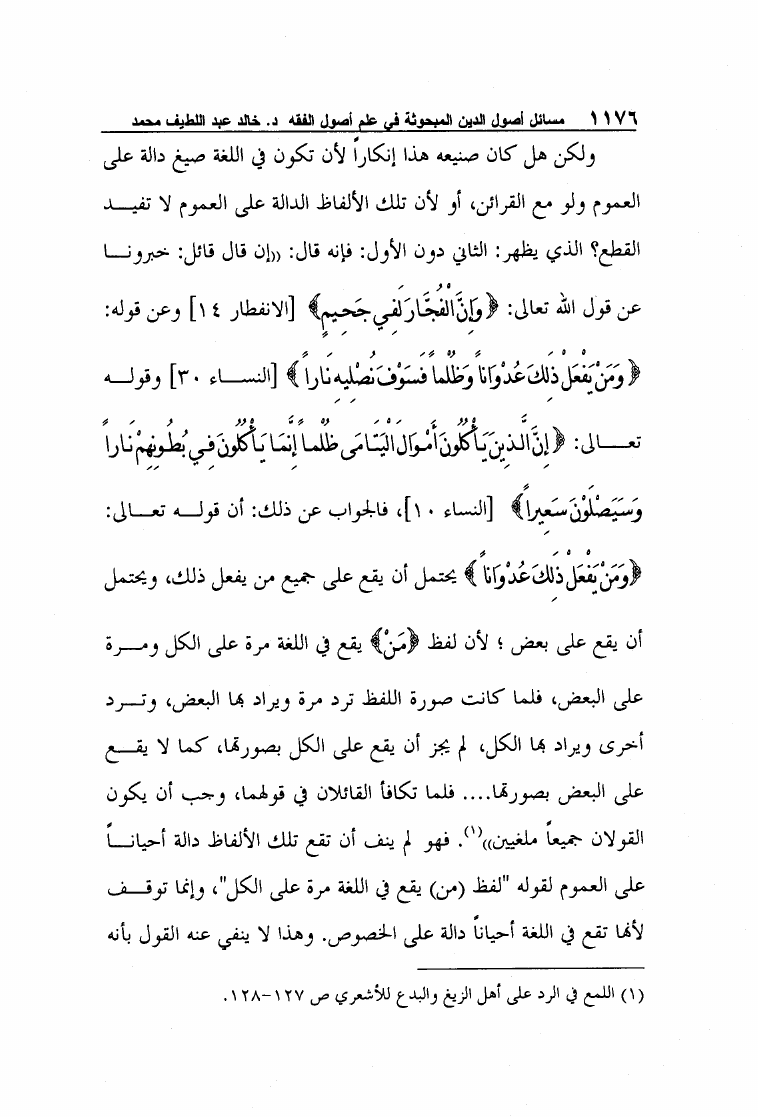 ١١٧٦ مسائل أصول الدين المبحوثة في علم أصول الفقه د. خالد عبد اللطيف محمد
ولكن هل كان صنيعه هذا إنكاراً لأن تكون في اللغة صيغ دالة على
العموم ولو مع القرائن، أو لأن تلك الألفاظ الدالة على العموم لا تفيد
القطع؟ الذي يظهر: الثاني دون الأول: فإنه قال: ((إن قال قائل: خبرونا
عن قول الله تعالى: ﴿وَإِنَّ الْفُجَّارَ لَفِي جَحِيمٍ﴾ [الانفطار ١٤] وعن قوله:
﴿وَمَنْ يَفْعَلْ ذَلِكَ عُدْوَاناً وَظُلْماً فَسَوْفَ نُصْلِيهِ نَاراً﴾ [النساء ٣٠] وقوله
تعالى: ﴿إِنَّ الَّذِينَ يَأْكُلُونَ أَمْوَالَ الْيَتَامَى ظُلْماً إِنَّمَا يَأْكُلُونَ فِي بُطُونِهِمْ نَاراً
وَسَيَصْلَوْنَ سَعِيراً﴾ [النساء ١٠]، فالجواب عن ذلك: أن قوله تعالى:
﴿وَمَنْ يَفْعَلْ ذَلِكَ عُدْوَاناً﴾ يحتمل أن يقع على جميع من يفعل ذلك، ويحتمل
أن يقع على بعض ؛ لأن لفظ ﴿مَنْ﴾ يقع في اللغة مرة على الكل ومرة
على البعض، فلما كانت صورة اللفظ ترد مرة ويراد بها البعض، وترد
أخرى ويراد بها الكل، لم يجز أن يقع على الكل بصورتها، كما لا يقع
على البعض بصورتها.... فلما تكافأ القائلان في قولهما، وجب أن يكون
القولان جميعاً ملغيين))(١). فهو لم ينف أن تقع تلك الألفاظ دالة أحياناً
على العموم لقوله "لفظ (من) يقع في اللغة مرة على الكل"، وإنما توقف
لأنها تقع في اللغة أحياناً دالة على الخصوص. وهذا لا ينفي عنه القول بأنه
(١) اللمع في الرد على أهل الزيغ والبدع للأشعري ص ١٢٧-١٢٨.